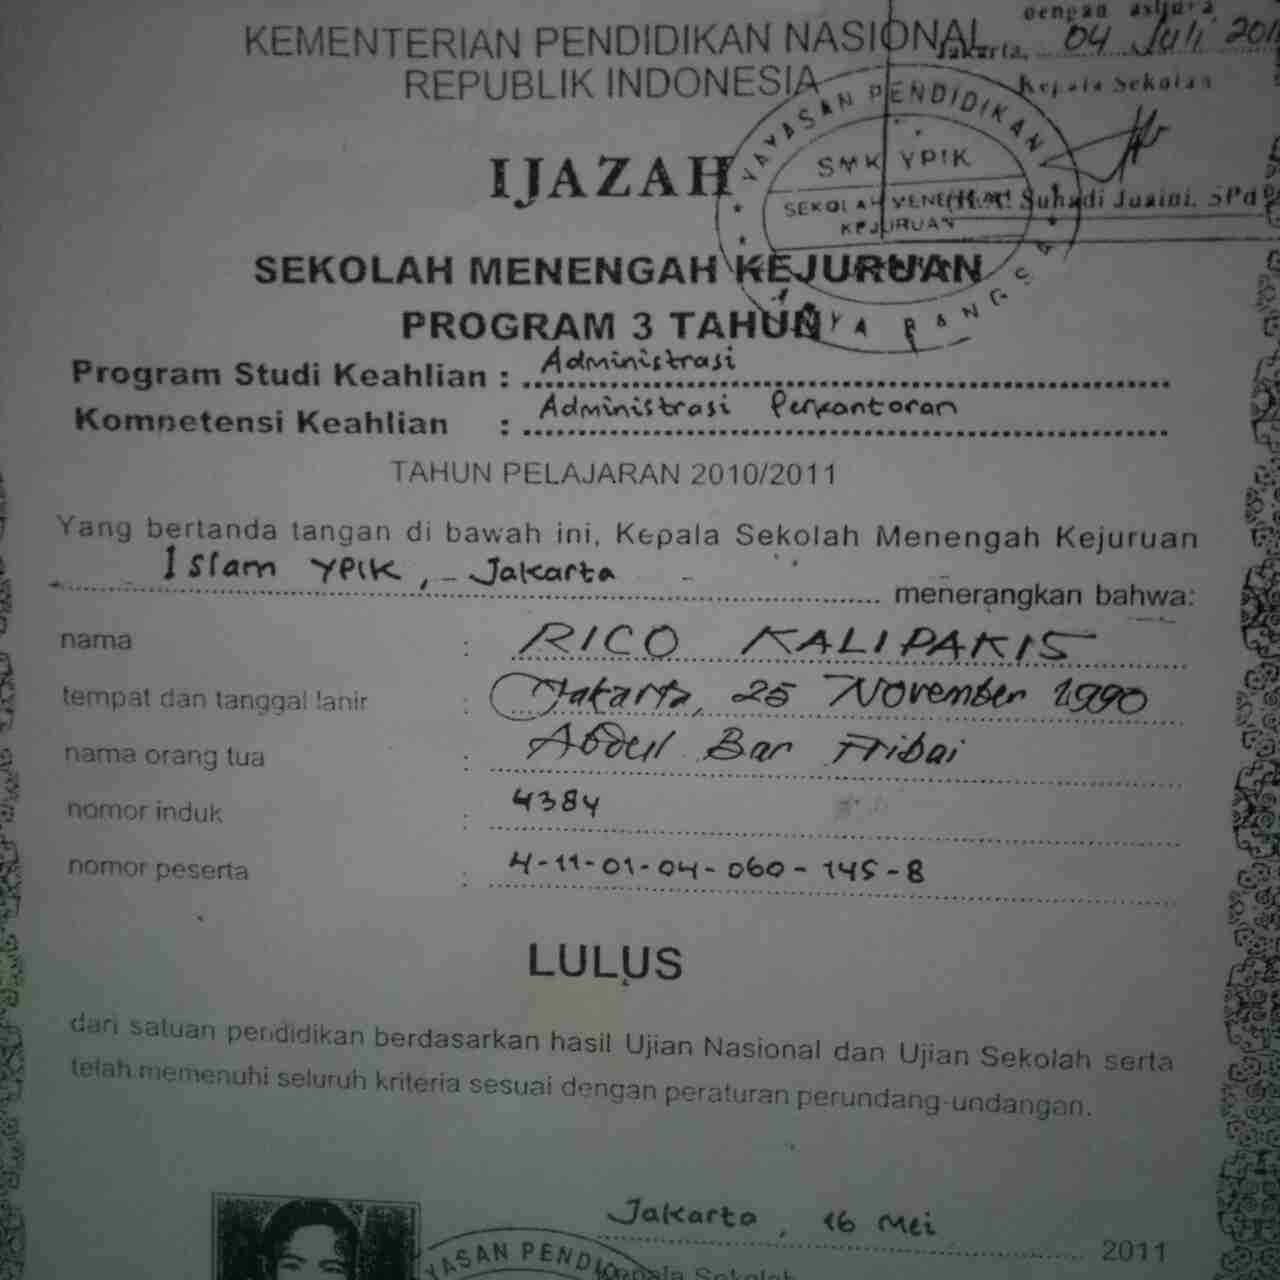 dengan aslinya
Jakarta, 04 Juli 201
Kepala Sekolah
Suhadi Juaini. SPd
KEMENTERIAN PENDIDIKAN NASIONAL
REPUBLIK INDONESIA
YAYASAN PENDIDIKAN
SMK YPIK
SEKOLAH MENENGAH
KEJURUAN
IJAZAH
SEKOLAH MENENGAH KEJURUAN
PROGRAM 3 TAHUN
Program Studi Keahlian : Administrasi
Kompetensi Keahlian : Administrasi Perkantoran
TAHUN PELAJARAN 2010/2011
Yang bertanda tangan di bawah ini, Kepala Sekolah Menengah Kejuruan
Islam YPIK, Jakarta menerangkan bahwa:
nama : RICO KALIPAKIS
tempat dan tanggal lahir : Jakarta, 25 November 1990
nama orang tua : Abdul Bar
nomor induk : 4384
nomor peserta : 4-11-01-04-060-145-8
LULUS
dari satuan pendidikan berdasarkan hasil Ujian Nasional dan Ujian Sekolah serta
telah memenuhi seluruh kriteria sesuai dengan peraturan perundang-undangan.
Jakarta, 16 Mei 2011
YASAN PENDI
Kepala Sekolah